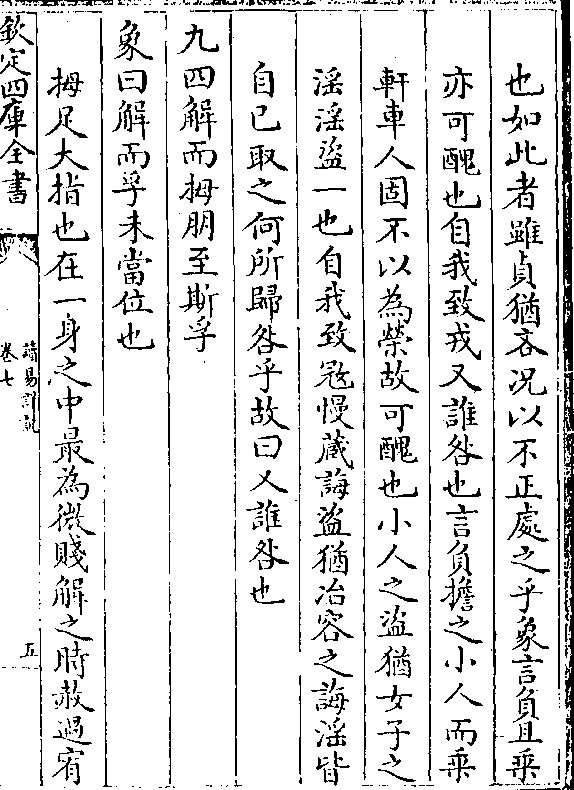 也如此者雖貞猶吝况以不正處之乎象言負且乗
亦可醜也自我致戎又誰咎也言負擔之小人而乗
軒車人固不以為榮故可醜也小人之盜猶女子之
淫淫盜一也自我致宼慢藏誨盜猶冶容之誨淫皆
自已取之何所歸咎乎故曰又誰咎也
九四解而拇朋至斯孚
象曰解而孚未當位也
拇足大指也在一身之中最為微賤解之時赦過宥
欽定四庫全書
讀易詳說
卷七
五